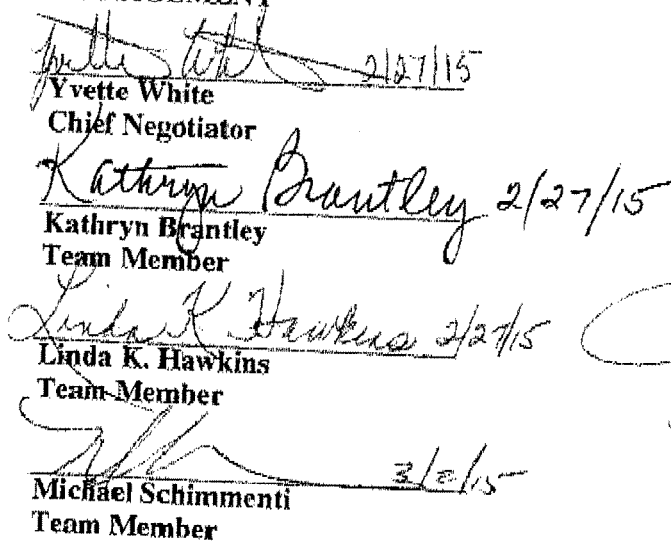 Yvette White 2/27/15
Yvette White
Chief Negotiator
Kathryn Brantley 2/27/15
Kathryn Brantley
Team Member
Linda K Hawkins 2/27/15
Linda K. Hawkins
Team Member
3/2/15
Michael Schimmenti
Team Member